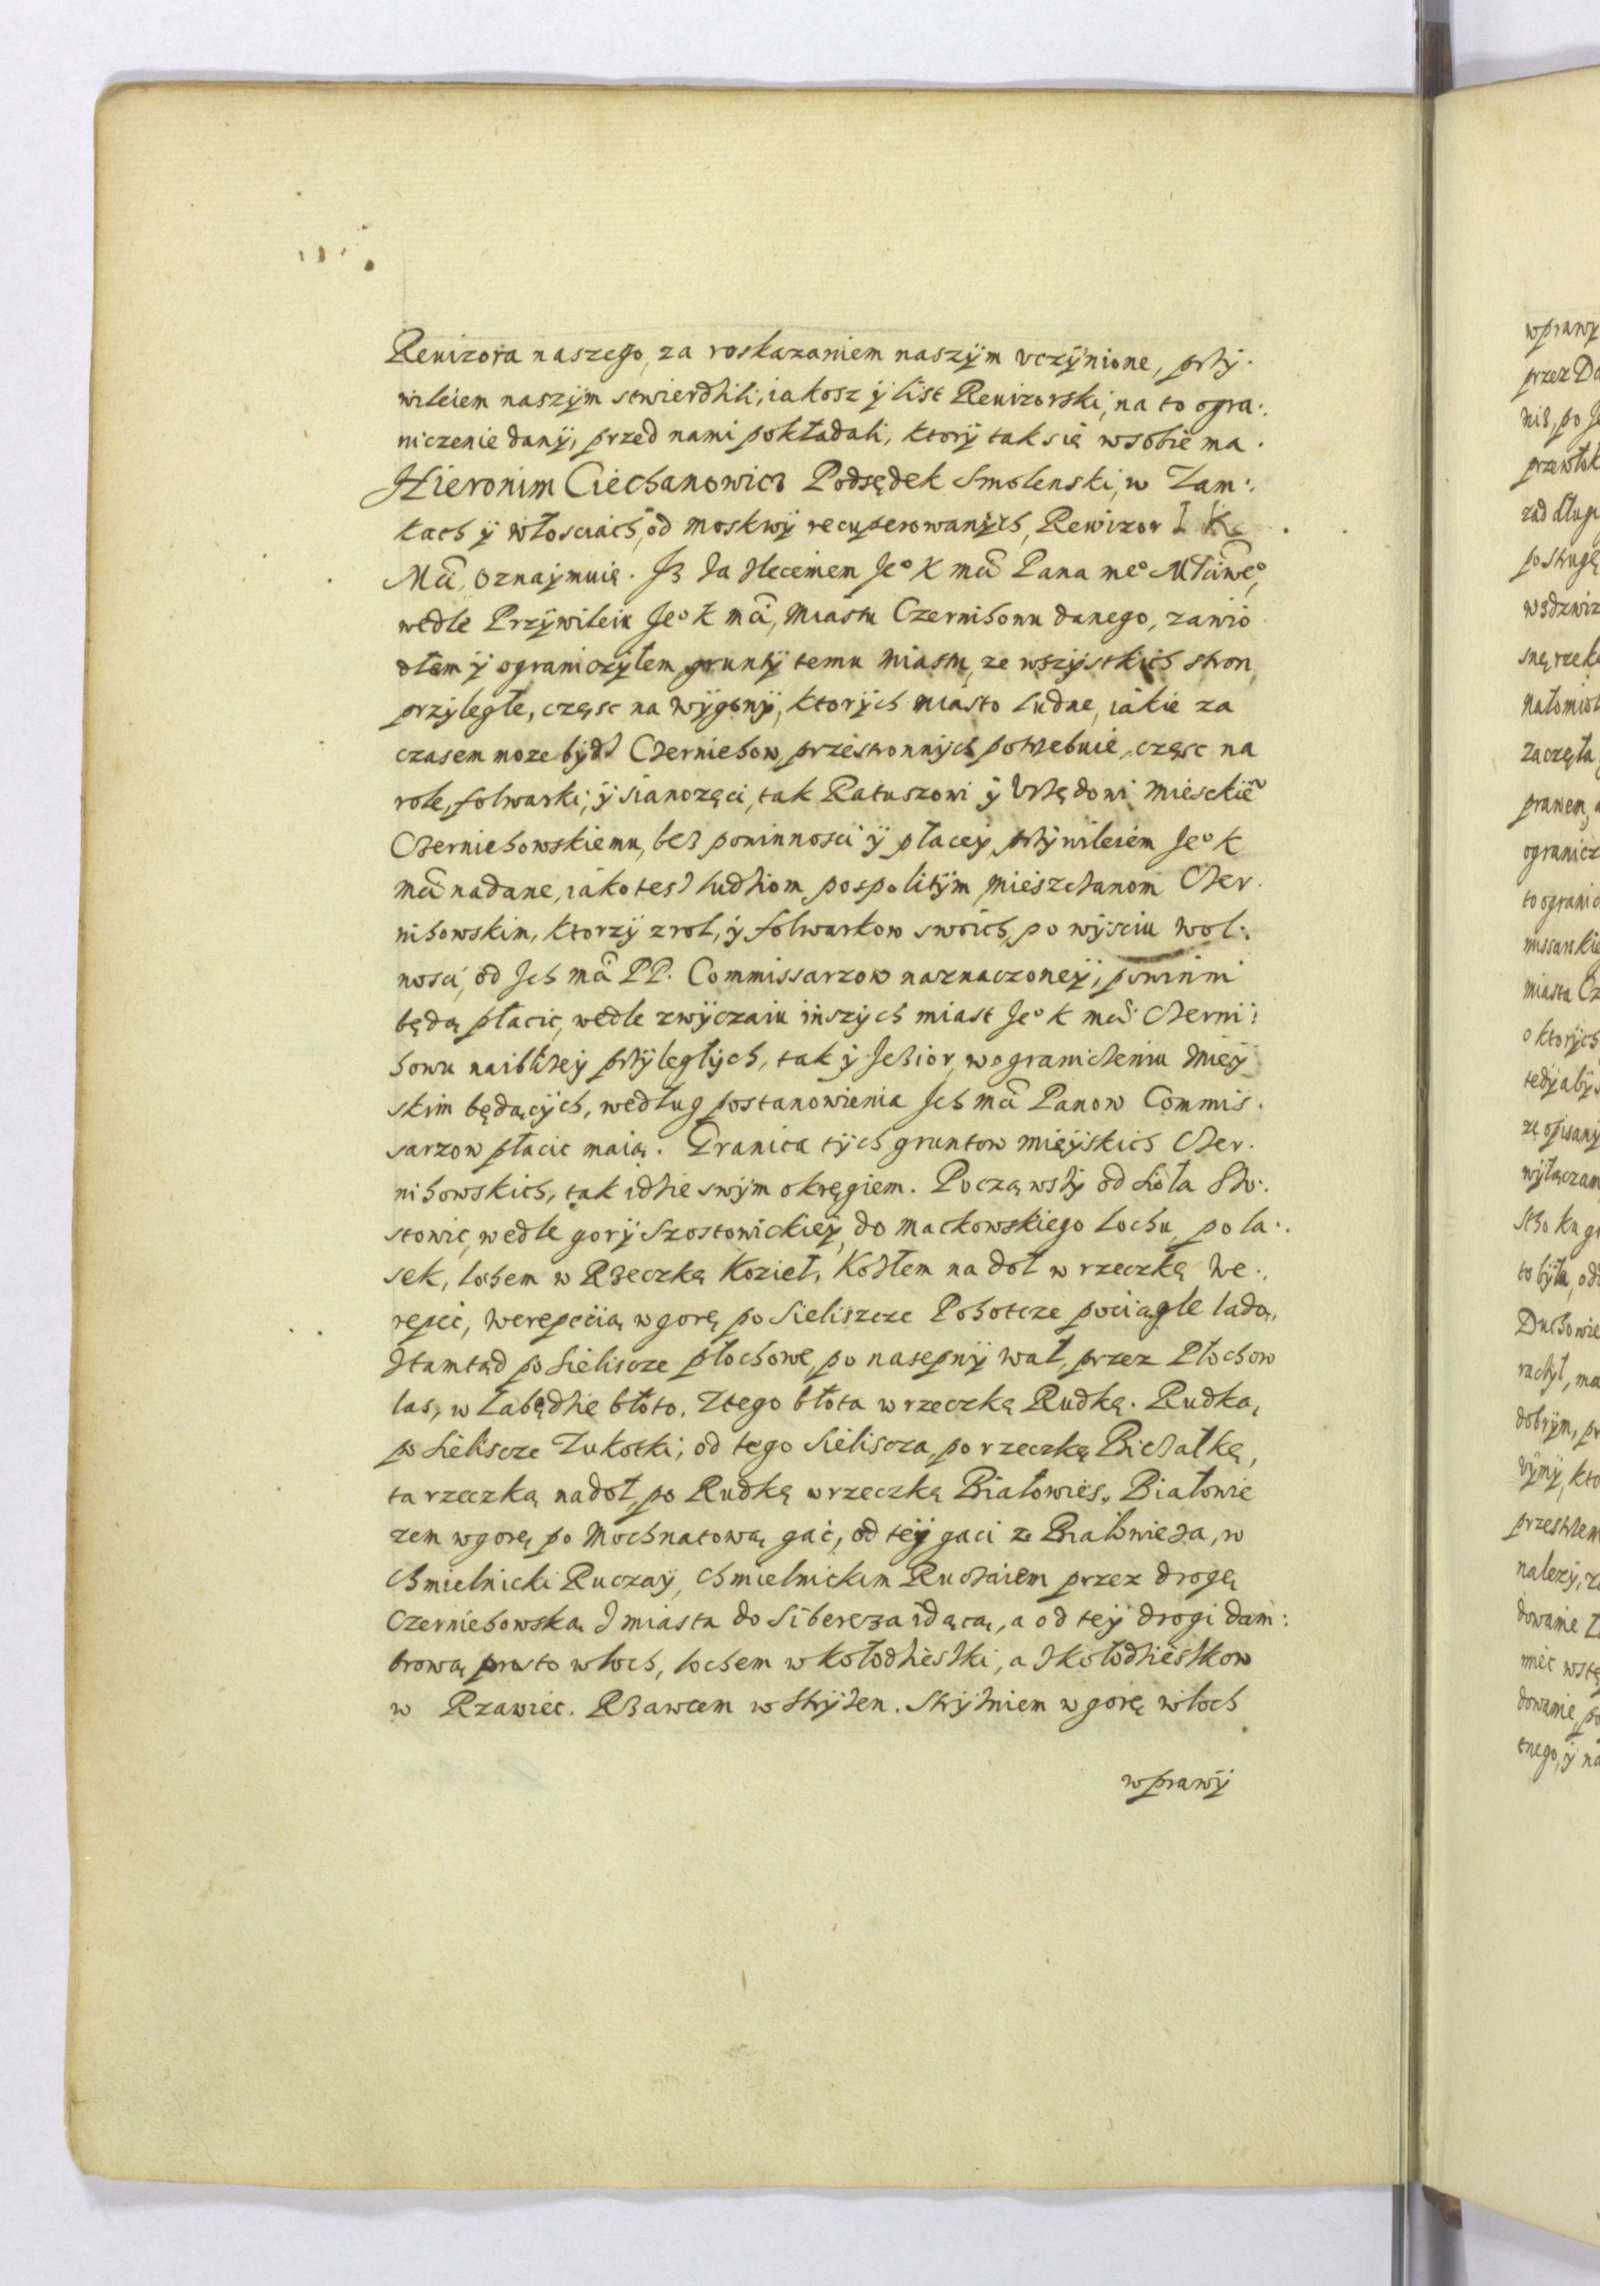 Rewizora naszego, za roskazaniem naszÿm vczÿnione, przÿ.
wileiem naszÿm stwierdzili, iakosz ÿ list Rewizorski, na to ogra.
niczenie danÿ, przed nami pokładali, ktorÿ tak się w sobie ma.
Hieronim Ciechanowicz Podsędek Smolenski, w Zam.
kach ÿ włosciach, od Moskwÿ recuperowanÿch, Rewizor I K
Mći, oznaÿmuię. Iz Ja zlecemem Jeº K mći Pana meº Młciweº,
wedle Przÿwileiu Jeº K mći, miastu Czernihowu danego, zawio
dłem ÿ ograniczÿłem gruntÿ temu miastu, ze wszÿstkich stron
przÿległe, częsc na wÿgonÿ, ktorÿch miasto ludne, iakie za
czasem moze bÿdz Czerniehow, przestronnÿch potrzebuie, częsc na
role, folwarki, ÿ sianozęci, tak Ratuszowi ÿ Vrzędowi Miesckie~
Czerniehowskiemu, bez powinnosci ÿ płaceÿ, przÿwileiem Jeº K
mći nadane, iako tesz ludziom pospolitÿm, mieszczanom Czer.
nihowskim, ktorzÿ z rol, ÿ folwarkow swoich, po wÿsciu wol.
nosci, od Ich mći PP. Commissarzow naznaczoneÿ, powinni
będą płacic, wedle zwÿczaiu inszÿch miast Jeº K mći Czerni:
howu naiblizeÿ przÿległÿch, tak ÿ Jezior, w ograniczeniu mieÿ
skim będącÿch, według postanowienia Ich mći Panow Commis.
sarzow płacic maią. Granica tÿch gruntow mieÿskich Czer.
nihowskich, tak idzie swÿm okręgiem. Począwszÿ od sioła Szo.
stowic, wedle gorÿ Szostowickieÿ, do Mackowskiego lochu, po la.
sek, lochem w Rzeczkę Kozieł, Kozłem na doł w rzeczkę We.
repeć, Werepecią w gorę po Sieliszcze Pohotcze pociągle lado,
ztamtąd po Sieliscze płochowe, po nasepnÿ wał, przez Płochow
las, w Łabędzie błoto. Z tego błota w rzeczkę Rudkę. Rudką,
po Sieliscze Zukotki, od tego Sieliscza, po rzeczkę Biczałkę,
ta rzeczką nadoł, po Rudkę w rzeczkę Białowies. Białowie
zem w gorę po Mochnatową gać, od teÿ gaci z Białowieza, w
Chmielnicki Ruczaÿ, Chmielnickim Ruczaiem przez drogę
Czerniehowską z miasta do Sibereza idącą, a od teÿ drogi dam:
brową prosto w łoch, lochem w Kołodzieszki, a z Kołodzieszkow
w Rzawiec. Rzawcem w Strÿzen. Strÿzniem w gorę w łoch
wprawÿ